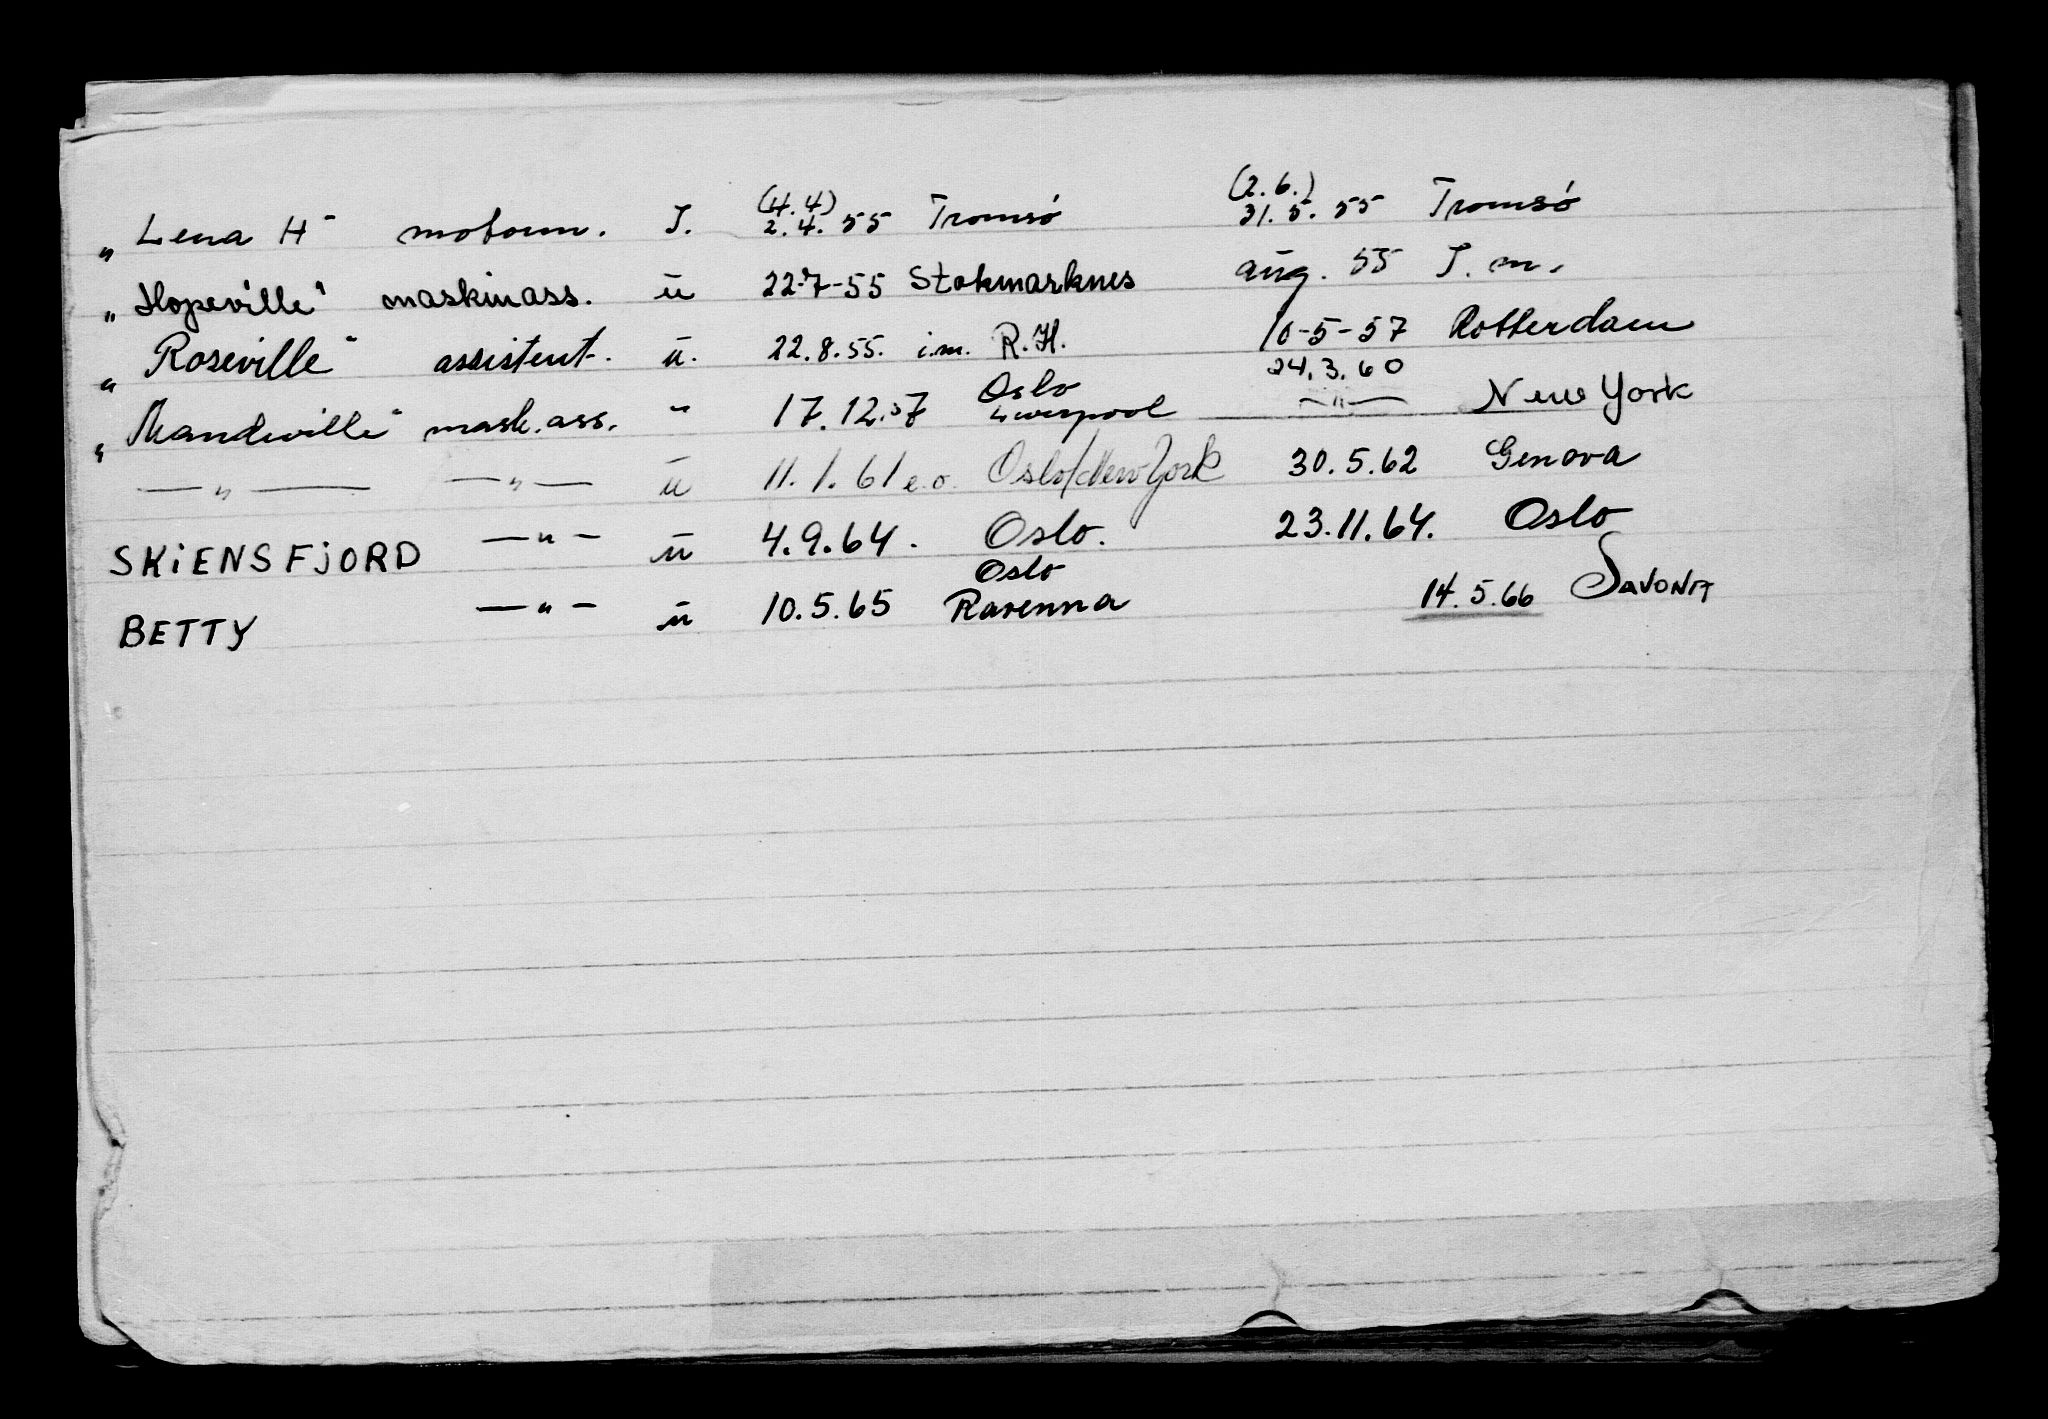 „Lena H" motorm. I. (4.4) 2.4.55 Tromsö (2.6.) 31.5.55 Tromsö
„Hopeville" maskinass. u 22-7-55 Stokmarknes aug. 55 I.m.
„Roseville" assistent. u. 22.8.55. i.m. R.H. 10-5-57 Rotterdam
„Mandeville" mask.ass. " 17.12.57 Oslo Liverpool 24.3.60 —"— New York
—"— —"— u 11.1.61 e.o. Oslo/New York 30.5.62 Genova
SKiENSFjORD —"— u 4.9.64. Oslo. 23.11.64. Oslo
BETTY —"— u 10.5.65 Oslo Ravenna 14.5.66 SAVONA